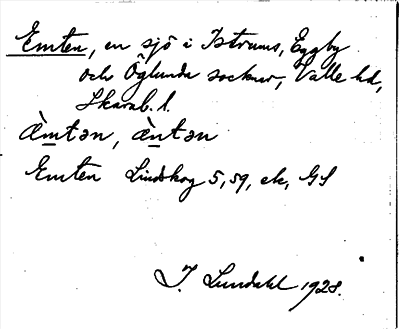 Emten, en sjö i Istrums, Eggby
och Öglunda socknar, Valle hd,
Skarab. l.
æ̀mtən, æ̀ntən
Emten Lindskog 5, 59, etc, GS
I. Lundahl 1928.